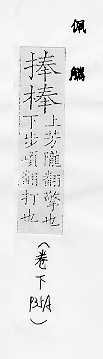 佩觿
捧棒
上芳隴翻擎也
下步項翻打也
（卷下P35A）